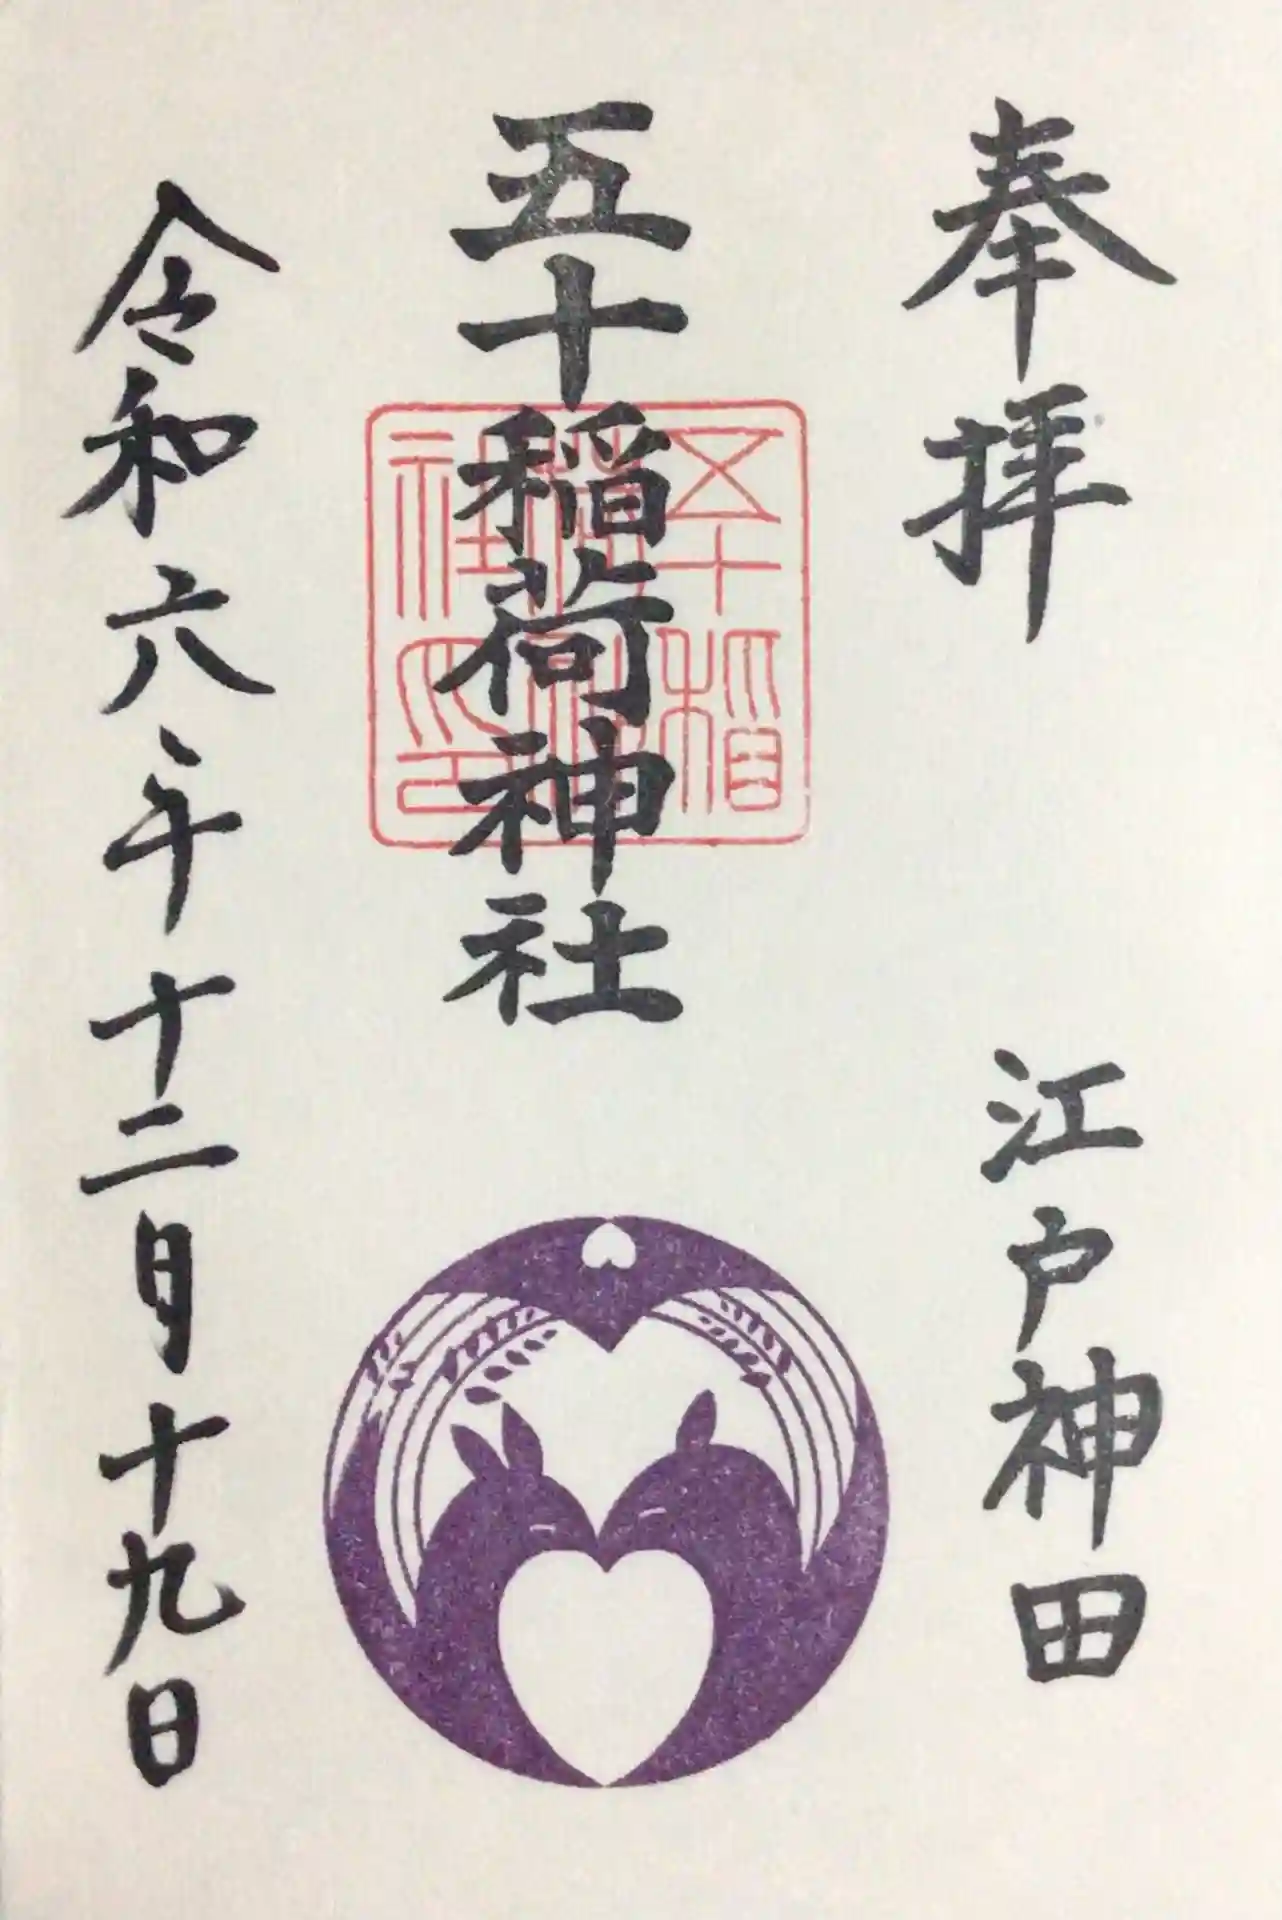 奉拝
江戸神田
五十稲荷神社
五十稲
荷神
社之印
令和六年十二月十九日